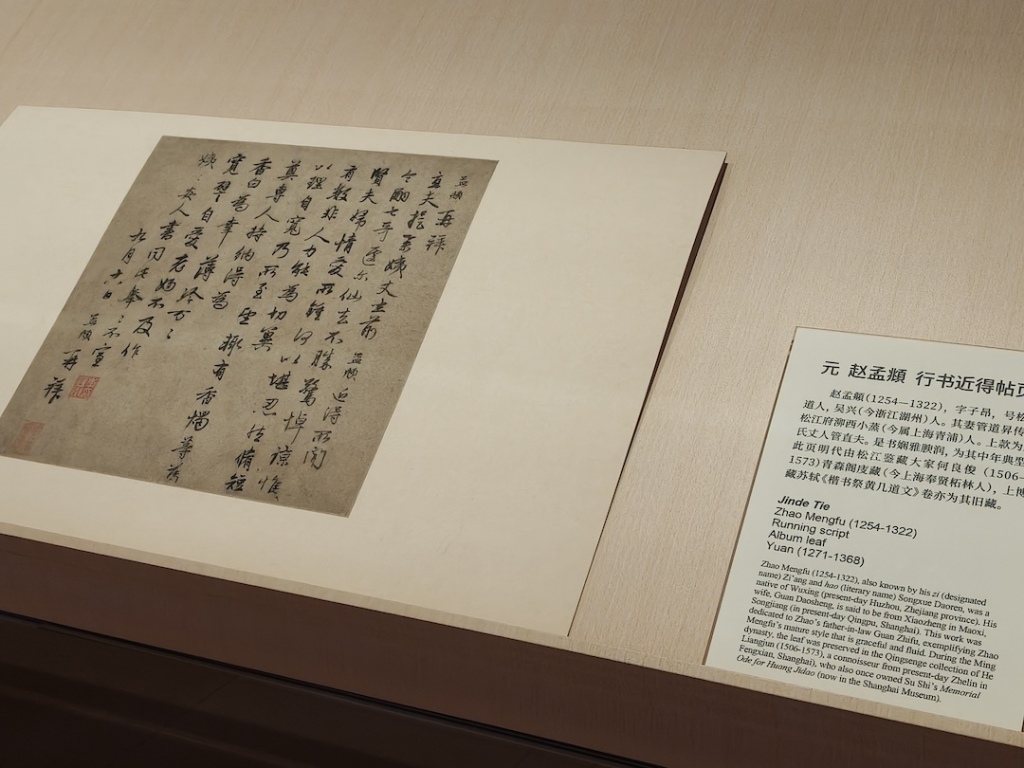 孟頫再拜
立夫提舉姨丈坐前孟頫近得所聞
令嗣七哥遽尔仙去不勝驚悼諒惟
賢夫婦情愛所鍾何以堪忍然脩短
有數非人力能為切冀
以理自寬乃所至望聊有香燭
奠專人持納得為
自愛
不宣
孟頫再拜
元 赵孟頫 行书近得帖页
赵孟頫(1254—1322)，字子昂，号松
道人，吴兴(今浙江湖州)人。其妻管道昇传
松江府泖西小蒸(今属上海青浦)人。上款为
氏丈人管直夫。是书娴雅腴润，为其中年典型
此页明代由松江鉴藏大家何良俊（1506—
1573）青森阁庋藏(今上海奉贤柘林人)，上博
藏苏轼《楷书祭黄几道文》卷亦为其旧藏。
Jinde Tie
Zhao Mengfu (1254-1322)
Running script
Album leaf
Yuan (1271-1368)
Zhao Mengfu (1254-1322), also known by his zi (designated
name) Zi'ang and hao (literary name) Songxue Daoren, was a
native of Wuxing (present-day Huzhou, Zhejiang province). His
wife, Guan Daosheng, is said to be from Xiaozheng in Maoxi,
Songjiang (in present-day Qingpu, Shanghai). This work was
dedicated to Zhao's father-in-law Guan Zhifu, exemplifying Zhao
Mengfu's mature style that is graceful and fluid. During the Ming
dynasty, the leaf was preserved in the Qingsenge collection of He
Liangjun (1506-1573), a connoisseur from present-day Zhelin in
Fengxian, Shanghai), who also once owned Su Shi's Memorial
Ode for Huang Jidao (now in the Shanghai Museum).